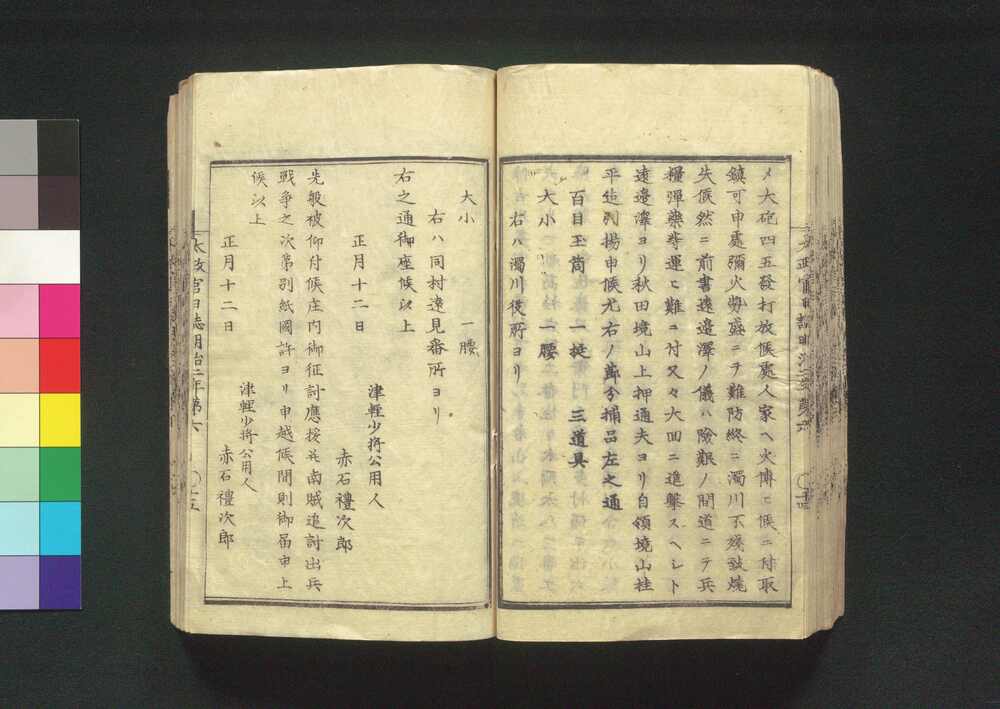 メ大砲四五發打放候處人家ヘ火傳ヒ候ニ付取
鎮可申處彌火勢盛ニテ難防終ニ濁川不殘致燒
失候然ニ前書遠邊澤ノ儀ハ險艱ノ間道ニテ兵
糧彈藥等運ヒ難ニ付又々大凹ニ進擊スヘシト
遠邊澤ヨリ秋田境山上押通夫ヨリ自領境山桂
平迄引揚申候尤右ノ節分捕品左之通
百目玉筒 一挺 三道具
大小 一腰
右ハ濁川役所ヨリ
大小 一腰
右ハ同村遠見番所ヨリ
右之通御座候以上
正月十二日
津輕少將公用人
赤石禮次郎
先般被仰付候庄内御征討應援並南賊追討出兵
戰爭之次第別紙國許ヨリ申越候間則御届申上
候以上
正月十二日
津輕少將公用人
赤石禮次郎
太政官日誌明治二年第六
〇十五